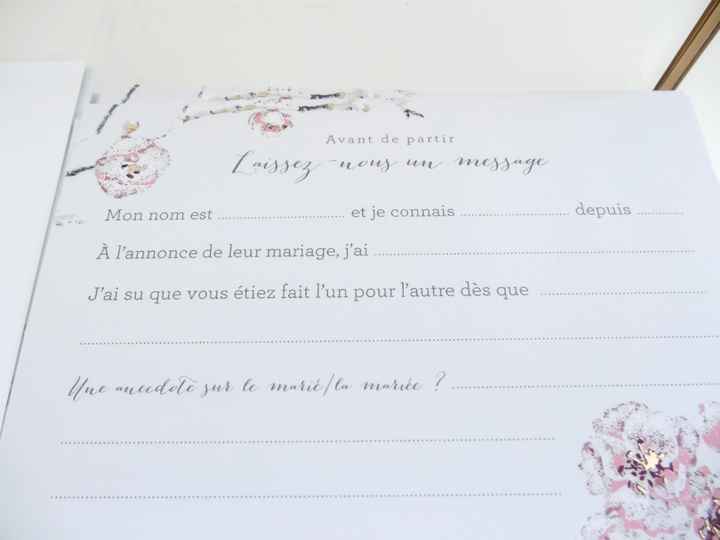 Avant de partir
Laissez-nous un message
Mon nom est ........................ et je connais ........................ depuis ............
À l'annonce de leur mariage, j'ai ........................
J'ai su que vous étiez fait l'un pour l'autre dès que ........................
Une anecdote sur le marié/la mariée ? ........................